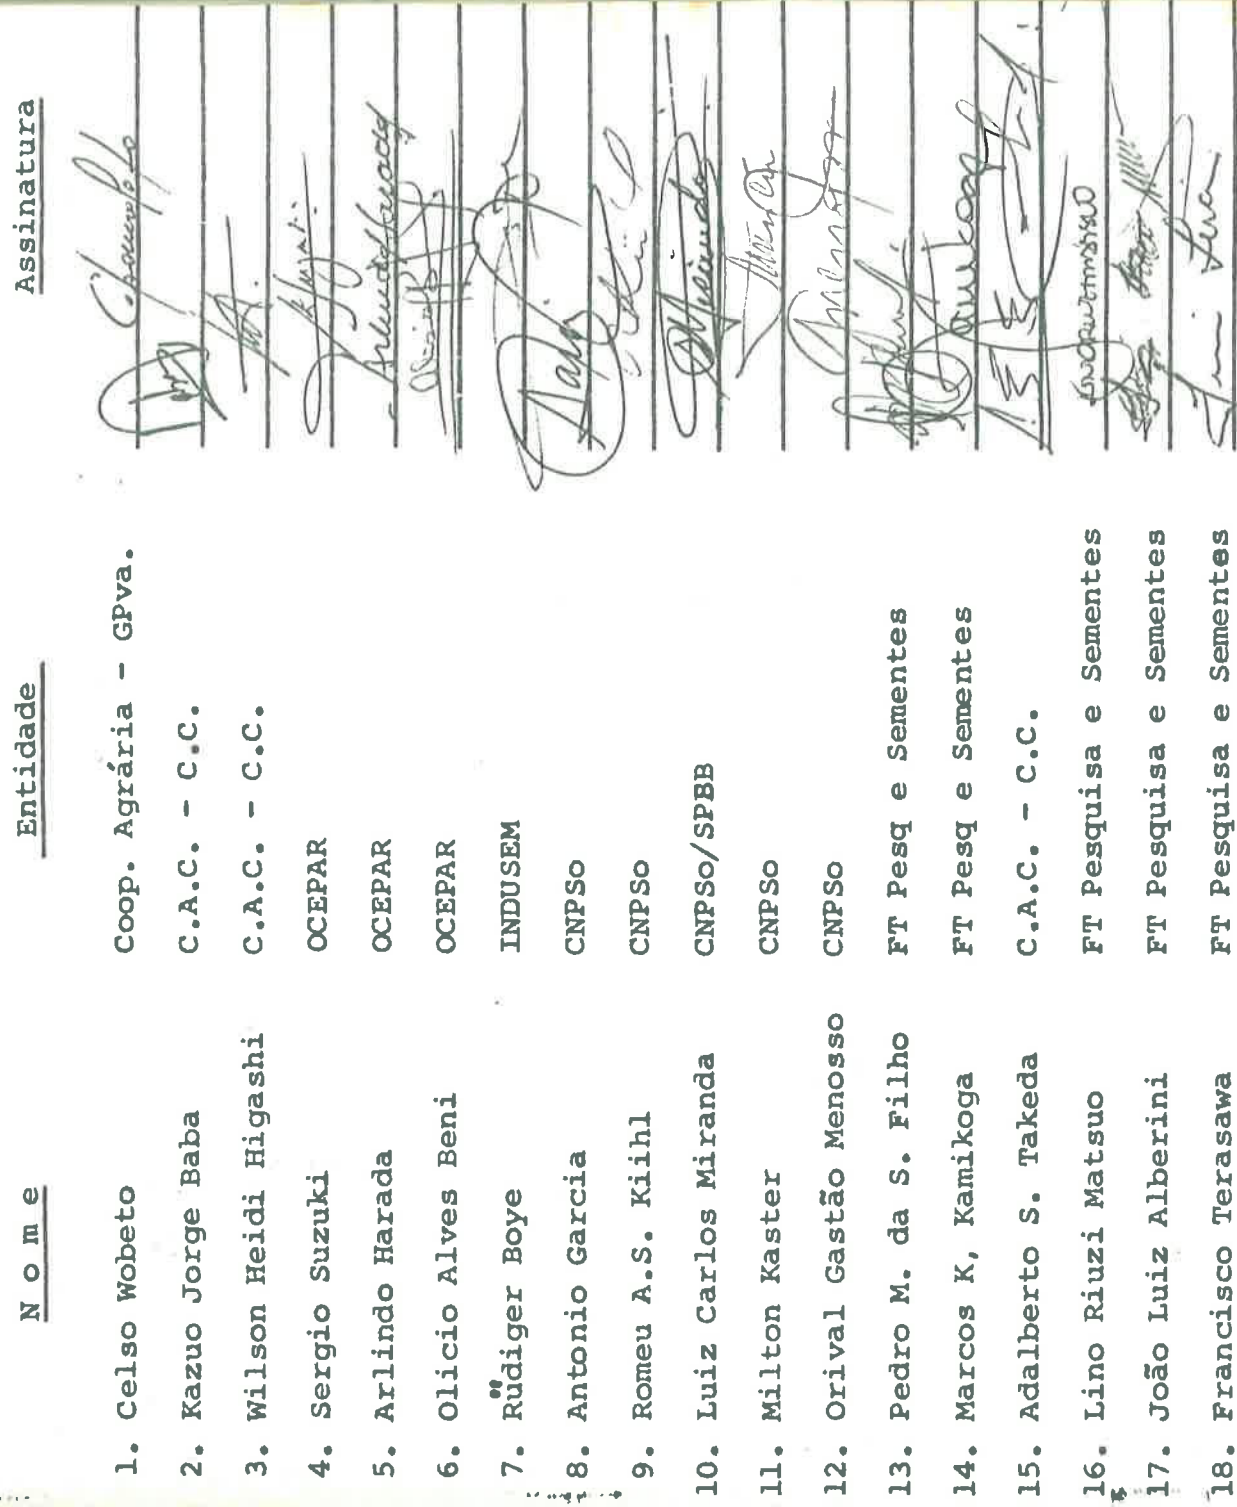 N o m e Entidade Assinatura
1. Celso Wobeto Coop. Agrária - GPva.
2. Kazuo Jorge Baba C.A.C. - C.C.
3. Wilson Heidi Higashi C.A.C. - C.C.
4. Sergio Suzuki OCEPAR
5. Arlindo Harada OCEPAR
6. Olicio Alves Beni OCEPAR
7. Rüdiger Boye INDUSEM
8. Antonio Garcia CNPSo
9. Romeu A.S. Kiihl CNPSo
10. Luiz Carlos Miranda CNPSo/SPBB
11. Milton Kaster CNPSo
12. Orival Gastão Menosso CNPSo
13. Pedro M. da S. Filho FT Pesq e Sementes
14. Marcos K, Kamikoga FT Pesq e Sementes
15. Adalberto S. Takeda C.A.C. - C.C.
16. Lino Riuzi Matsuo FT Pesquisa e Sementes
17. João Luiz Alberini FT Pesquisa e Sementes
18. Francisco Terasawa FT Pesquisa e Sementes